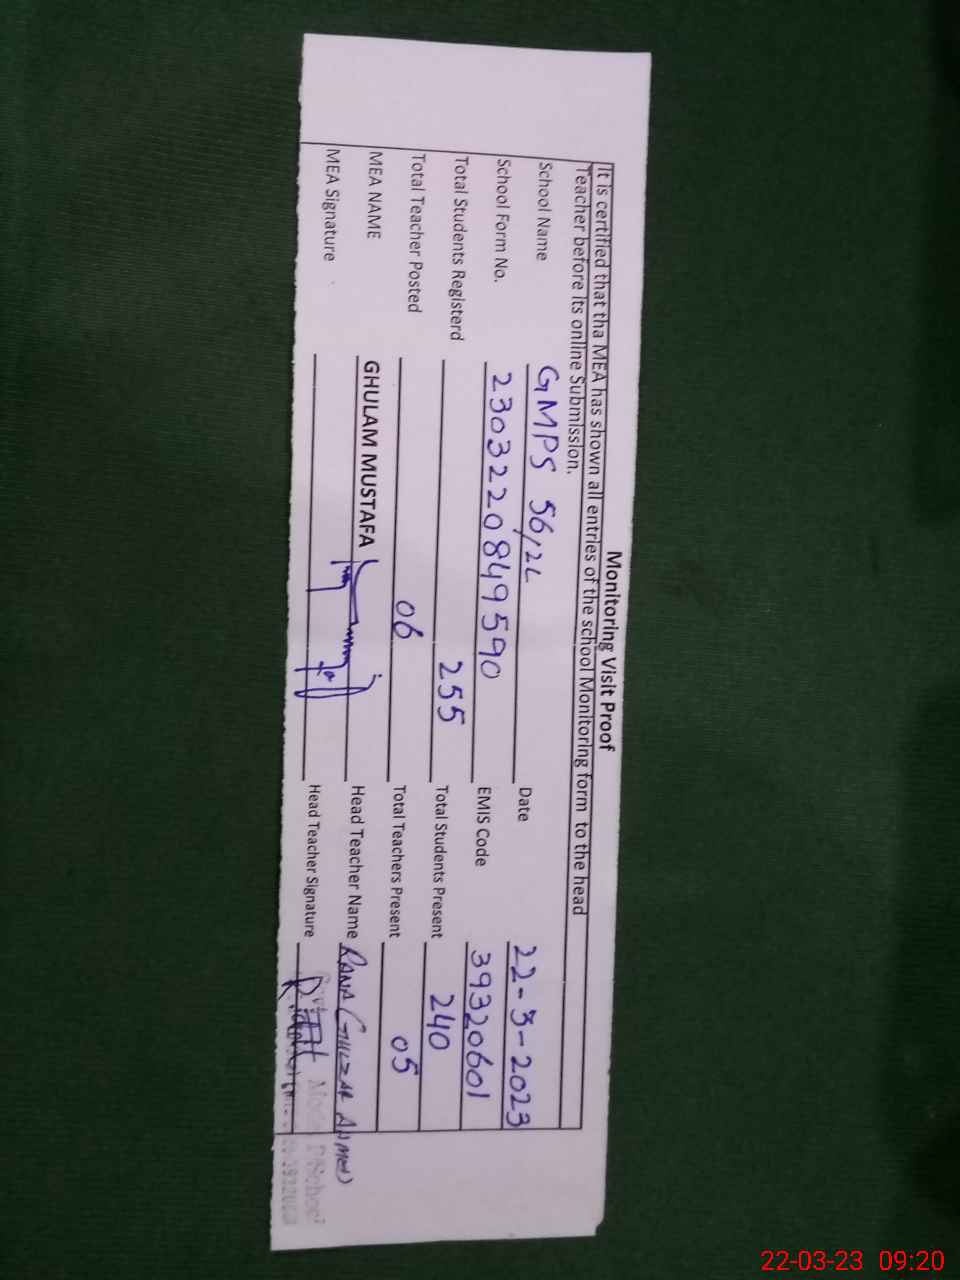 Monitoring Visit Proof
It is certified that tha MEA has shown all entries of the school Monitoring form to the head
Teacher before its online Submission.
School Name GMPS 56/2L Date 22-3-2023
School Form No. 2303220849590 EMIS Code 39320601
Total Students Registerd 255 Total Students Present 240
Total Teacher Posted 06 Total Teachers Present 05
MEA NAME GHULAM MUSTAFA Head Teacher Name RANA GULZAR AHMED
MEA Signature Head Teacher Signature
Model P/School
22-03-23 09:20